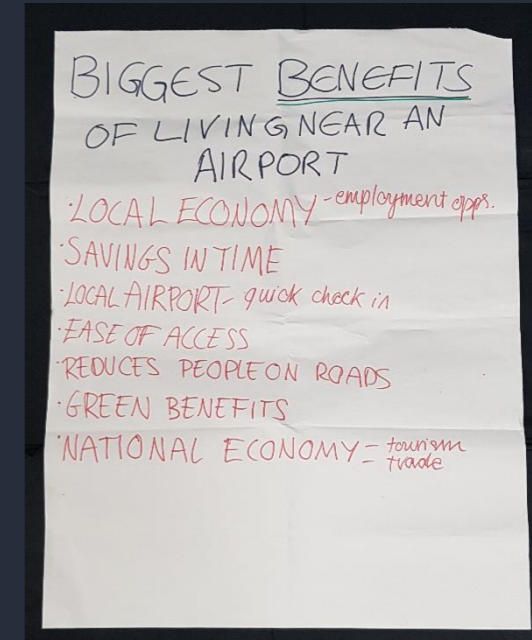 BIGGEST BENEFITS
OF LIVING NEAR AN
AIRPORT
·LOCAL ECONOMY - employment opps.
·SAVINGS IN TIME
·LOCAL AIRPORT - quick check in
·EASE OF ACCESS
·REDUCES PEOPLE ON ROADS
·GREEN BENEFITS
·NATIONAL ECONOMY - tourism
- trade